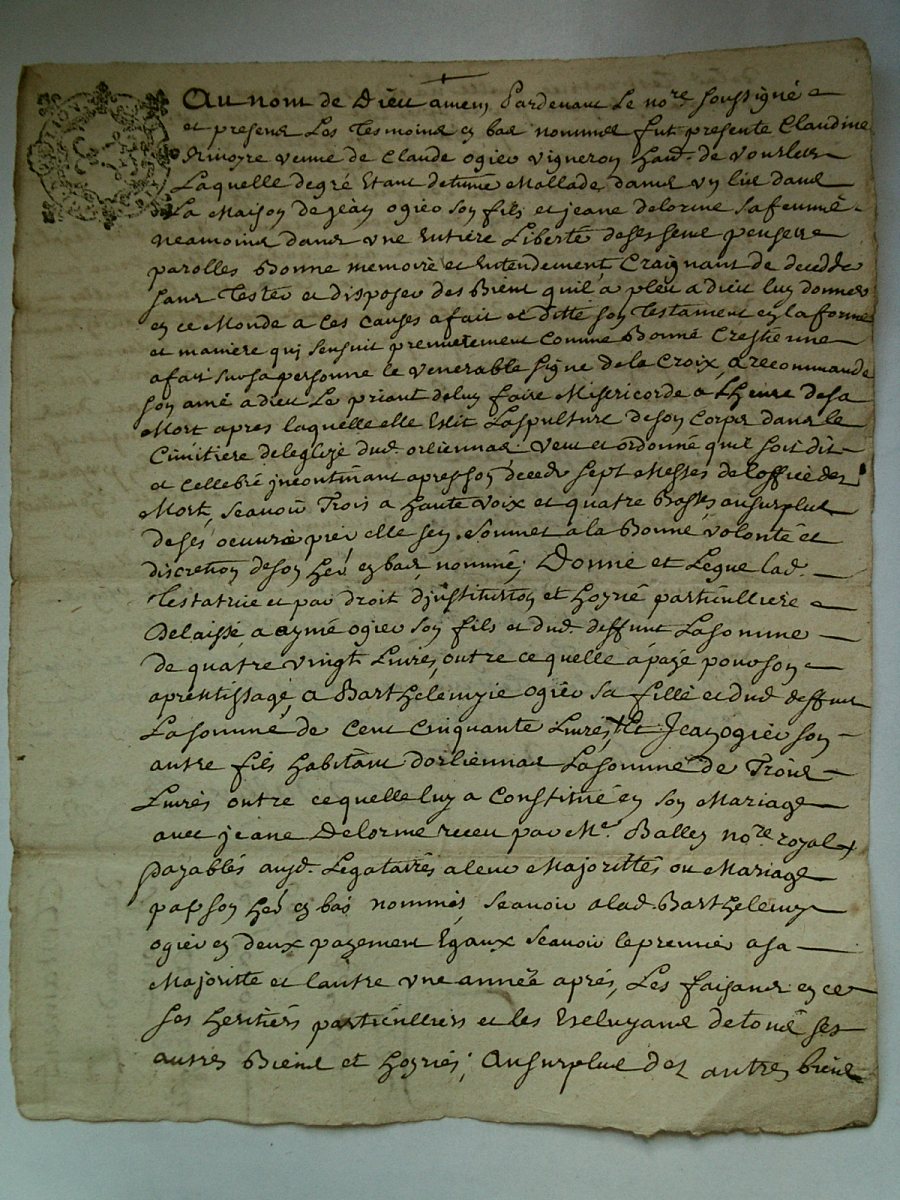 Au nom de Dieu amen Pardevant le no.re soussigné
et presens Les Tesmoins en bas nommes fut presente Claudine
veuve de Claude ogier vigneron hand. de vourles
Laquelle de gré Etant detenue Mallade dans un lit dans
La Maison de jean ogier son fils et jeane delorme sa femme
neamoins dans une Entiere Liberté de ses sens pensees
parolles Bonne memoire et Entendement Craignant de decedde
sans Tester et disposer des Biens quil a pleu a dieu luy donner
en ce Monde a Ces Causes a fait et ditté son Testament en la forme
et maniere qui sensuit premierement Comme Bonne Crestienne
a fait sur sa personne le venerable signe de la Croix, a recommandé
son ame a dieu Le priant de luy faire Misericorde a Lheure de sa
Mort apres laquelle elle Eslit La spulture de son Corps dans le
Cimitiere de leglize dud. orliennas veut et ordonne quil soit dit
et Cellebré jncontinant apres son deceds sept Messes de loffice des
Mort, scavoir Trois a haute voix et quatre Basses au surplus
de ses oeuvres pies elle sen. a la Bonne volonté et
discretion de son her. en bas nommé; Donne et Legue lad.
Testatrice et par droit djnstitution et hoyrie particulliere
delaisse a aymé ogier son fils et dud. deffunt La somme
de quatre vingt Livres, outre ce quelle a payé pour son
aprentissage, a Barthelemyie ogier sa fille et dud deffunt
La somme de Cent Cinquante Livres, Et Jean ogier son
autre fils habitant dorliennas La somme de Trois
Livres outre ce quelle luy a Constitué en son Mariage
avec jeane Delorme receu par Me. Balley no.re royal
payables auxd. Legataires a leur Majorittés ou Mariage
par son her en bas nommés, scavoir a lad. Barthelemye
ogier en deux payement Egaux scavoir le premier a sa
Majoritte et lautre une année aprés, Les faisans en ce
ses heritiers particulliers et les Excluyant de tous ses
autres Biens et hoyries; Au surplus des autres biens